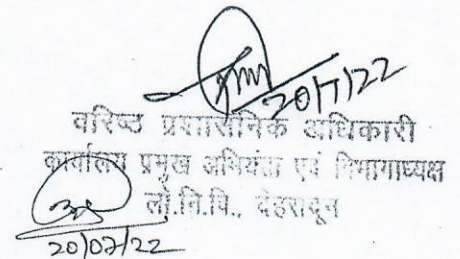 20/7/22
वरिष्ठ प्रशासनिक अधिकारी
कार्यालय प्रमुख अभियंता एवं विभागाध्यक्ष
लो.नि.वि., देहरादून
20/07/22